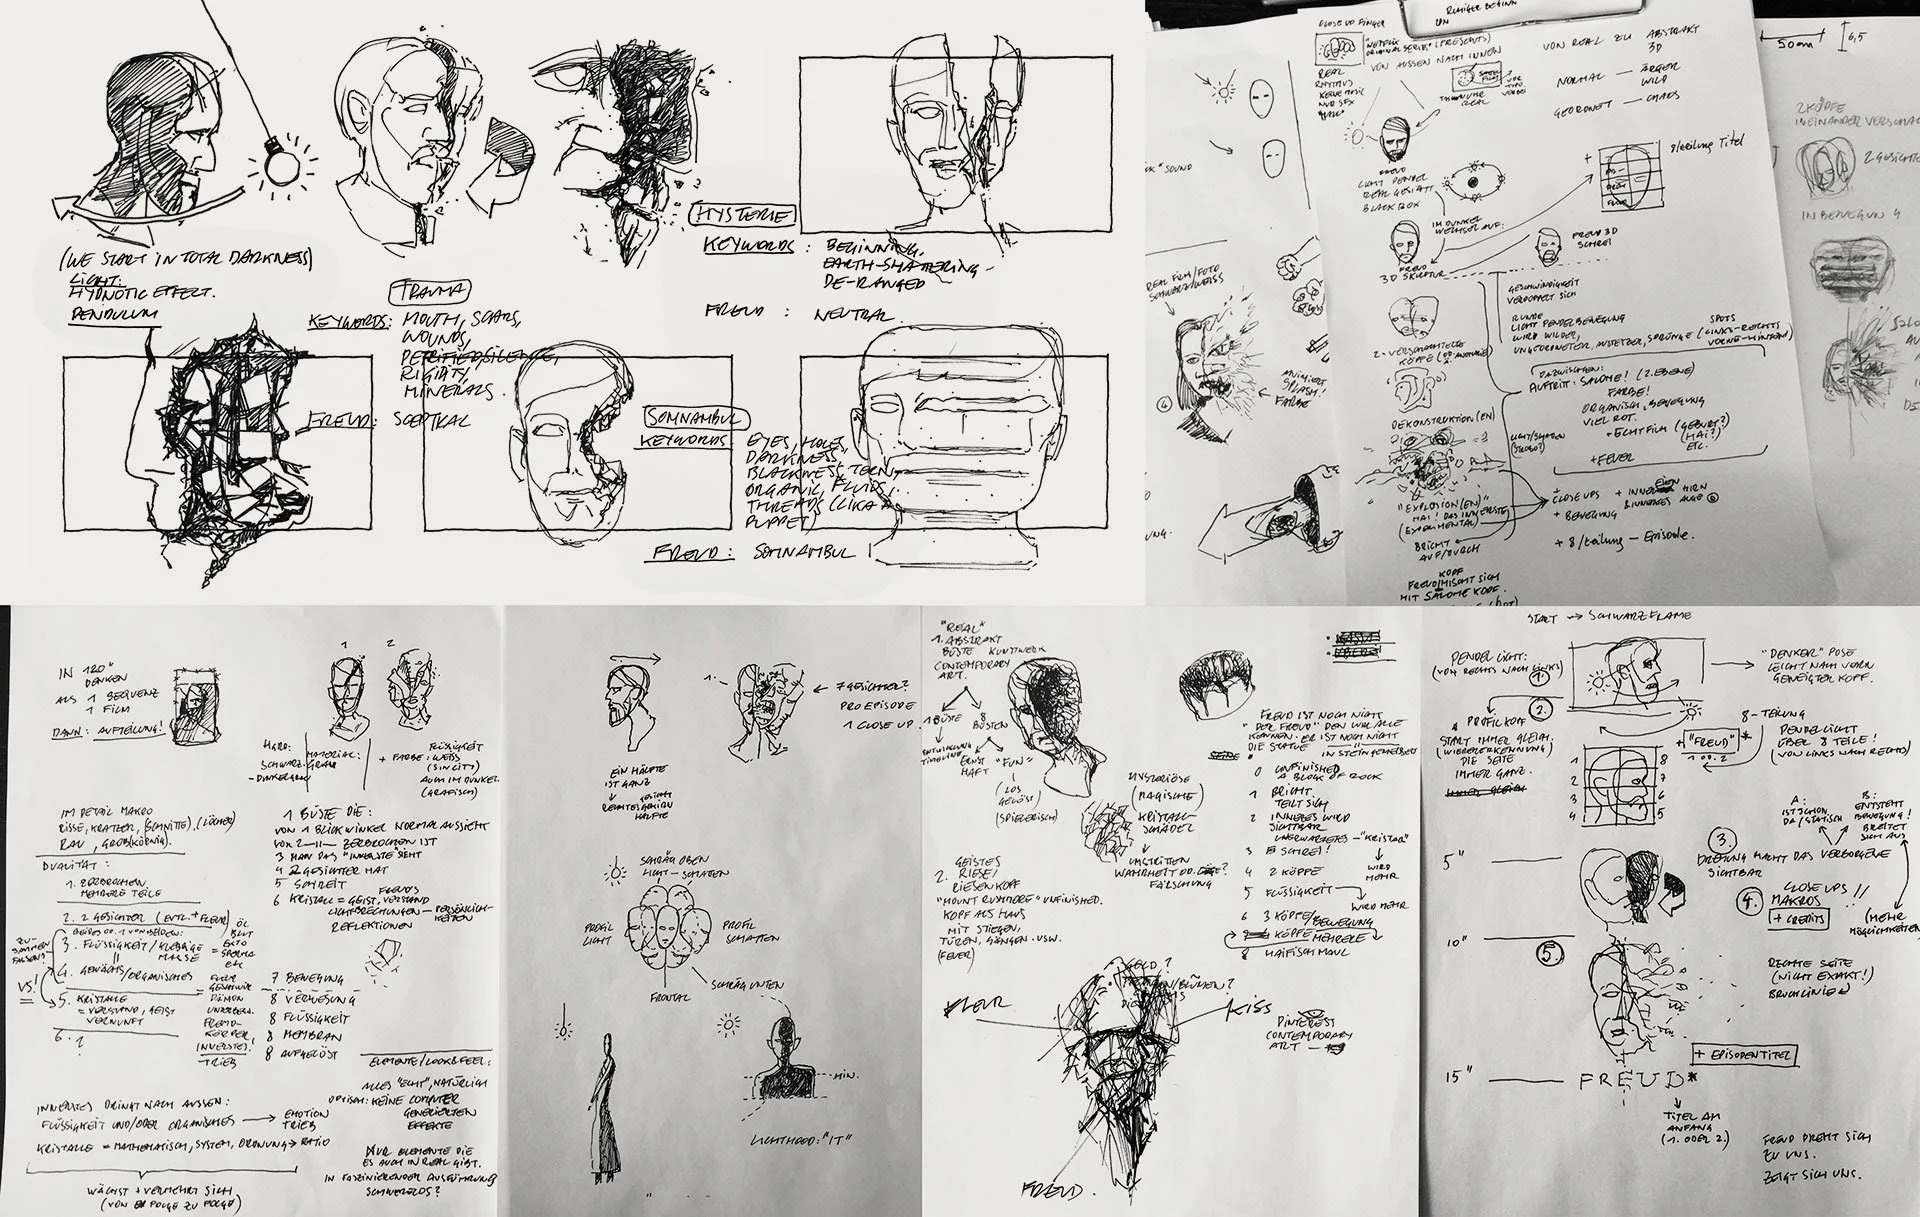 (WE START IN TOTAL DARKNESS)
LIGHT:
HYPNOTIC EFFECT.
PENDULUM
TRAUMA
KEYWORDS: MOUTH, SCARS,
WOUNDS,
PETRIFIED, SILENCE,
RIGIDITY,
MINERALS.
FREUD: SCEPTICAL
HYSTERIE
KEYWORDS: BEGINNING,
EARTH-SHATTERING-
DE-RANGED
FREUD: NEUTRAL
SOMNAMBUL
KEYWORDS: EYES, HOLES,
DARKNESS
BLACKNESS,
ORGANIC, FLUIDS,
THREADS (LIKA A
PUPPET)
FREUD: SOMNAMBUL
RUHIGER BEGINN
CLOSE UP FINGER
"NETFLIX
ORIGINAL SERIE" (PRESENTS)
VON AUSSEN NACH INNEN
REAL
RHYTMUS
KEINE MUSIK
NUR SFX
VON REAL ZU ABSTRAKT
3D
NORMAL — ÄRGER
WILD
GEORDNET — CHAOS
SOUND
FREUD
LICHT PENDEL
REAL GEFILMT
BLACK BOX
+ 8/teilung Titel
IM DUNKEL
WECHSEL AUF:
FREUD
3D SKULPTUR
FREUD 3D
SCHREI
REAL FILM/FOTO
SCHWARZ/WEISS
GESCHWINDIGKEIT
VERDOPPELT SICH
RUNDE
LICHT PENDELBEWEGUNG
WIRD WILDER,
UNGEORDNETER, AUSSETZER, SPRÜNGE (LINKS-RECHTS
VORNE-HINTEN)
SPOTS
2-VERSCHACHTELTE
KÖPFE
DAZWISCHEN:
AUFTRITT: SALOME! (2. EBENE)
FARBE!
ORGANISCH, BEWEGUNG
VIEL ROT.
+ ECHTFILM (GEBURT?)
(HAI?)
ETC.
+ FEUER
ANIMIERT
SPLASH!
FARBE
DEKONSTRUKTION(EN)
LICHT/SCHATTEN
(STROBO?)
+ CLOSE UPS + INNEREIEN HIRN
+ BEWEGUNG & INNERES AUGE
"EXPLOSION(EN)"
HAI! DAS INNERSTE
(EXPERIMENTAL)
BRICHT
AUF/DURCH
+ 8/teilung — Episode.
KOPF
FREUD/MISCHT SICH
MIT SALOME KOPF.
50cm
6,5
2 KÖPFE
INEINANDER
2 GESICHTER
IN BEWEGUNG
IN 120"
DENKEN
ALS 1 SEQUENZ
1 FILM
DANN: AUFTEILUNG!
1 2
HARD:
SCHWARZ-
-DUNKELGRAU
MATERIAL:
+ FARBE:
FLÜSSIGKEIT
WEISS
(SIN CITY)
AUCH IM DUNKEL
(GRAFISCH)
IM DETAIL MAKRO
RISSE, KRATZER, (SCHNITTE), (LÖCHER)
RAU, GROB(KÖRNIG).
DUALITÄT:
1. ZERBROCHEN
MEHRERE TEILE
2. 2 GESICHTER (EVTL. + FLEUR)
3. FLÜSSIGKEIT/KLEBRIGE
MASSE
ÖL
BLUT
EKTO
SPERMA
ZU-
SAMMEN
FASSEN?
VS!
4. GEWÄCHS/ORGANISCHES
5. KRISTALLE
= VERSTAND, GEIST
VERNUNFT
6. ?
DÄMON
UNTERBEW.
FREMD-
KÖRPER,
INNERSTES.
TRIEB
1 BÜSTE DIE:
VON 1 BLICKWINKEL NORMAL AUSSIEHT
VON 2 —11— ZERBROCHEN IST
3 MAN DAS "INNERSTE" SIEHT
4 2 GESICHTER HAT
5 SCHREIT
6 KRISTALL = GEIST, VERSTAND
LICHTBRECHUNGEN — FREUD'S PERSÖNLICH-
KEITEN
REFLEKTIONEN
7 BEWEGUNG
8 VERWESUNG
8 FLÜSSIGKEIT
8 MEMBRAN
8 AUFGELÖST
INNERSTES DRINGT NACH AUSSEN:
FLÜSSIGKEIT UND/ODER ORGANISCHES → EMOTION
TRIEB
KRISTALLE = MATHEMATISCH, SYSTEM, ORDNUNG → RATIO
WÄCHST + VERMEHRT SICH
(VON FOLGE ZU FOLGE)
ELEMENTE/LOOK&FEEL:
ALLES "ECHT", NATÜRLICH
OPTISCH: KEINE COMPUTER
GENERIERTEN
EFFEKTE
NUR ELEMENTE DIE
ES AUCH IN REAL GIBT.
IN FASZINIERENDER AUSFÜHRUNG
SCHWERELOS?
7 GESICHTER?
PRO EPISODE
1 CLOSE UP.
EIN HÄLFTE
IST GANZ
RECHTE GESICHTS
HÄLFTE
SCHRÄG OBEN
LICHT-SCHATTEN
PROFIL
LICHT
PROFIL
SCHATTEN
FRONTAL
SCHRÄG UNTEN
MIN.
LICHTMOOD: "IT"
"REAL"
1. ABSTRAKT
BÜSTE KUNSTWERK
CONTEMPORARY
ART.
1 BÜSTE
8 BÜSTEN
ENTWICKLUNG
TIMELINE
ERNST
HAFT
"FUN"
(LOS
GELÖST)
(SPIELERISCH)
GEISTES
2. RIESE/
RIESENKOPF
"MOUNT RUSHMORE" UNFINISHED.
KOPF ALS HAUS
MIT STIEGEN,
TÜREN, GÄNGEN. USW.
(FEVER)
MYSTERIÖSE
(MAGISCHE)
KRISTALL-
SCHÄDEL
UMSTRITTEN
WAHRHEIT OD.
FÄLSCHUNG
FREUD IST NOCH NICHT
"DER FREUD" DEN WIR ALLE
KENNEN. ER IST NOCH NICHT
DIE STATUE IN STEIN GEMEISSELT
0 UNFINISHED
A BLOCK OF ROCK
1 BRICHT.
TEILT SICH
2 INNERES WIRD
SICHTBAR
UNERWARTETES — "KRISTALL"
WIRD
MEHR
3 SCHREI!
4 2 KÖPFE
5 FLÜSSIGKEIT
WIRD MEHR
6 3 KÖPFE/BEWEGUNG
KÖPFE MEHRERE
8 HAIFISCH MAUL
GELD?
BLUMEN?
FLEUR
KISS
PINTEREST
CONTEMPORARY
ART
FREUD.
START → SCHWARZFRAME
PENDEL LICHT:
(VON RECHTS NACH LINKS)
1.
"DENKER" POSE
LEICHT NACH VORN
GENEIGTER KOPF.
PROFILKOPF
START IMMER GLEICH.
(WIEDERERKENNUNG)
DIE SEITE
IMMER GANZ.
2.
+ "FREUD"*
1 OD. 2
8-TEILUNG
PENDELLICHT
ÜBER 8 TEILE!
(VON LINKS NACH RECHTS)
1 8
2 7
3 6
4 5
A:
IST SCHON
DA/STATISCH
B:
ENTSTEHT
BEWEGUNG!
BREITET
SICH AUS
3.
DREHUNG MACHT DAS VERBORGENE
SICHTBAR
5"
4.
CLOSE UPS
MAKROS !!
+ CREDITS
(MEHR
MÖGLICHKEITEN
10"
5.
RECHTE SEITE
(NICHT EXAKT!)
BRUCHLINIEN
+ EPISODENTITEL
15" FREUD*
TITEL AM
ANFANG
(1. ODER 2.)
FREUD DREHT SICH
ZU UNS.
ZEIGT SICH UNS.